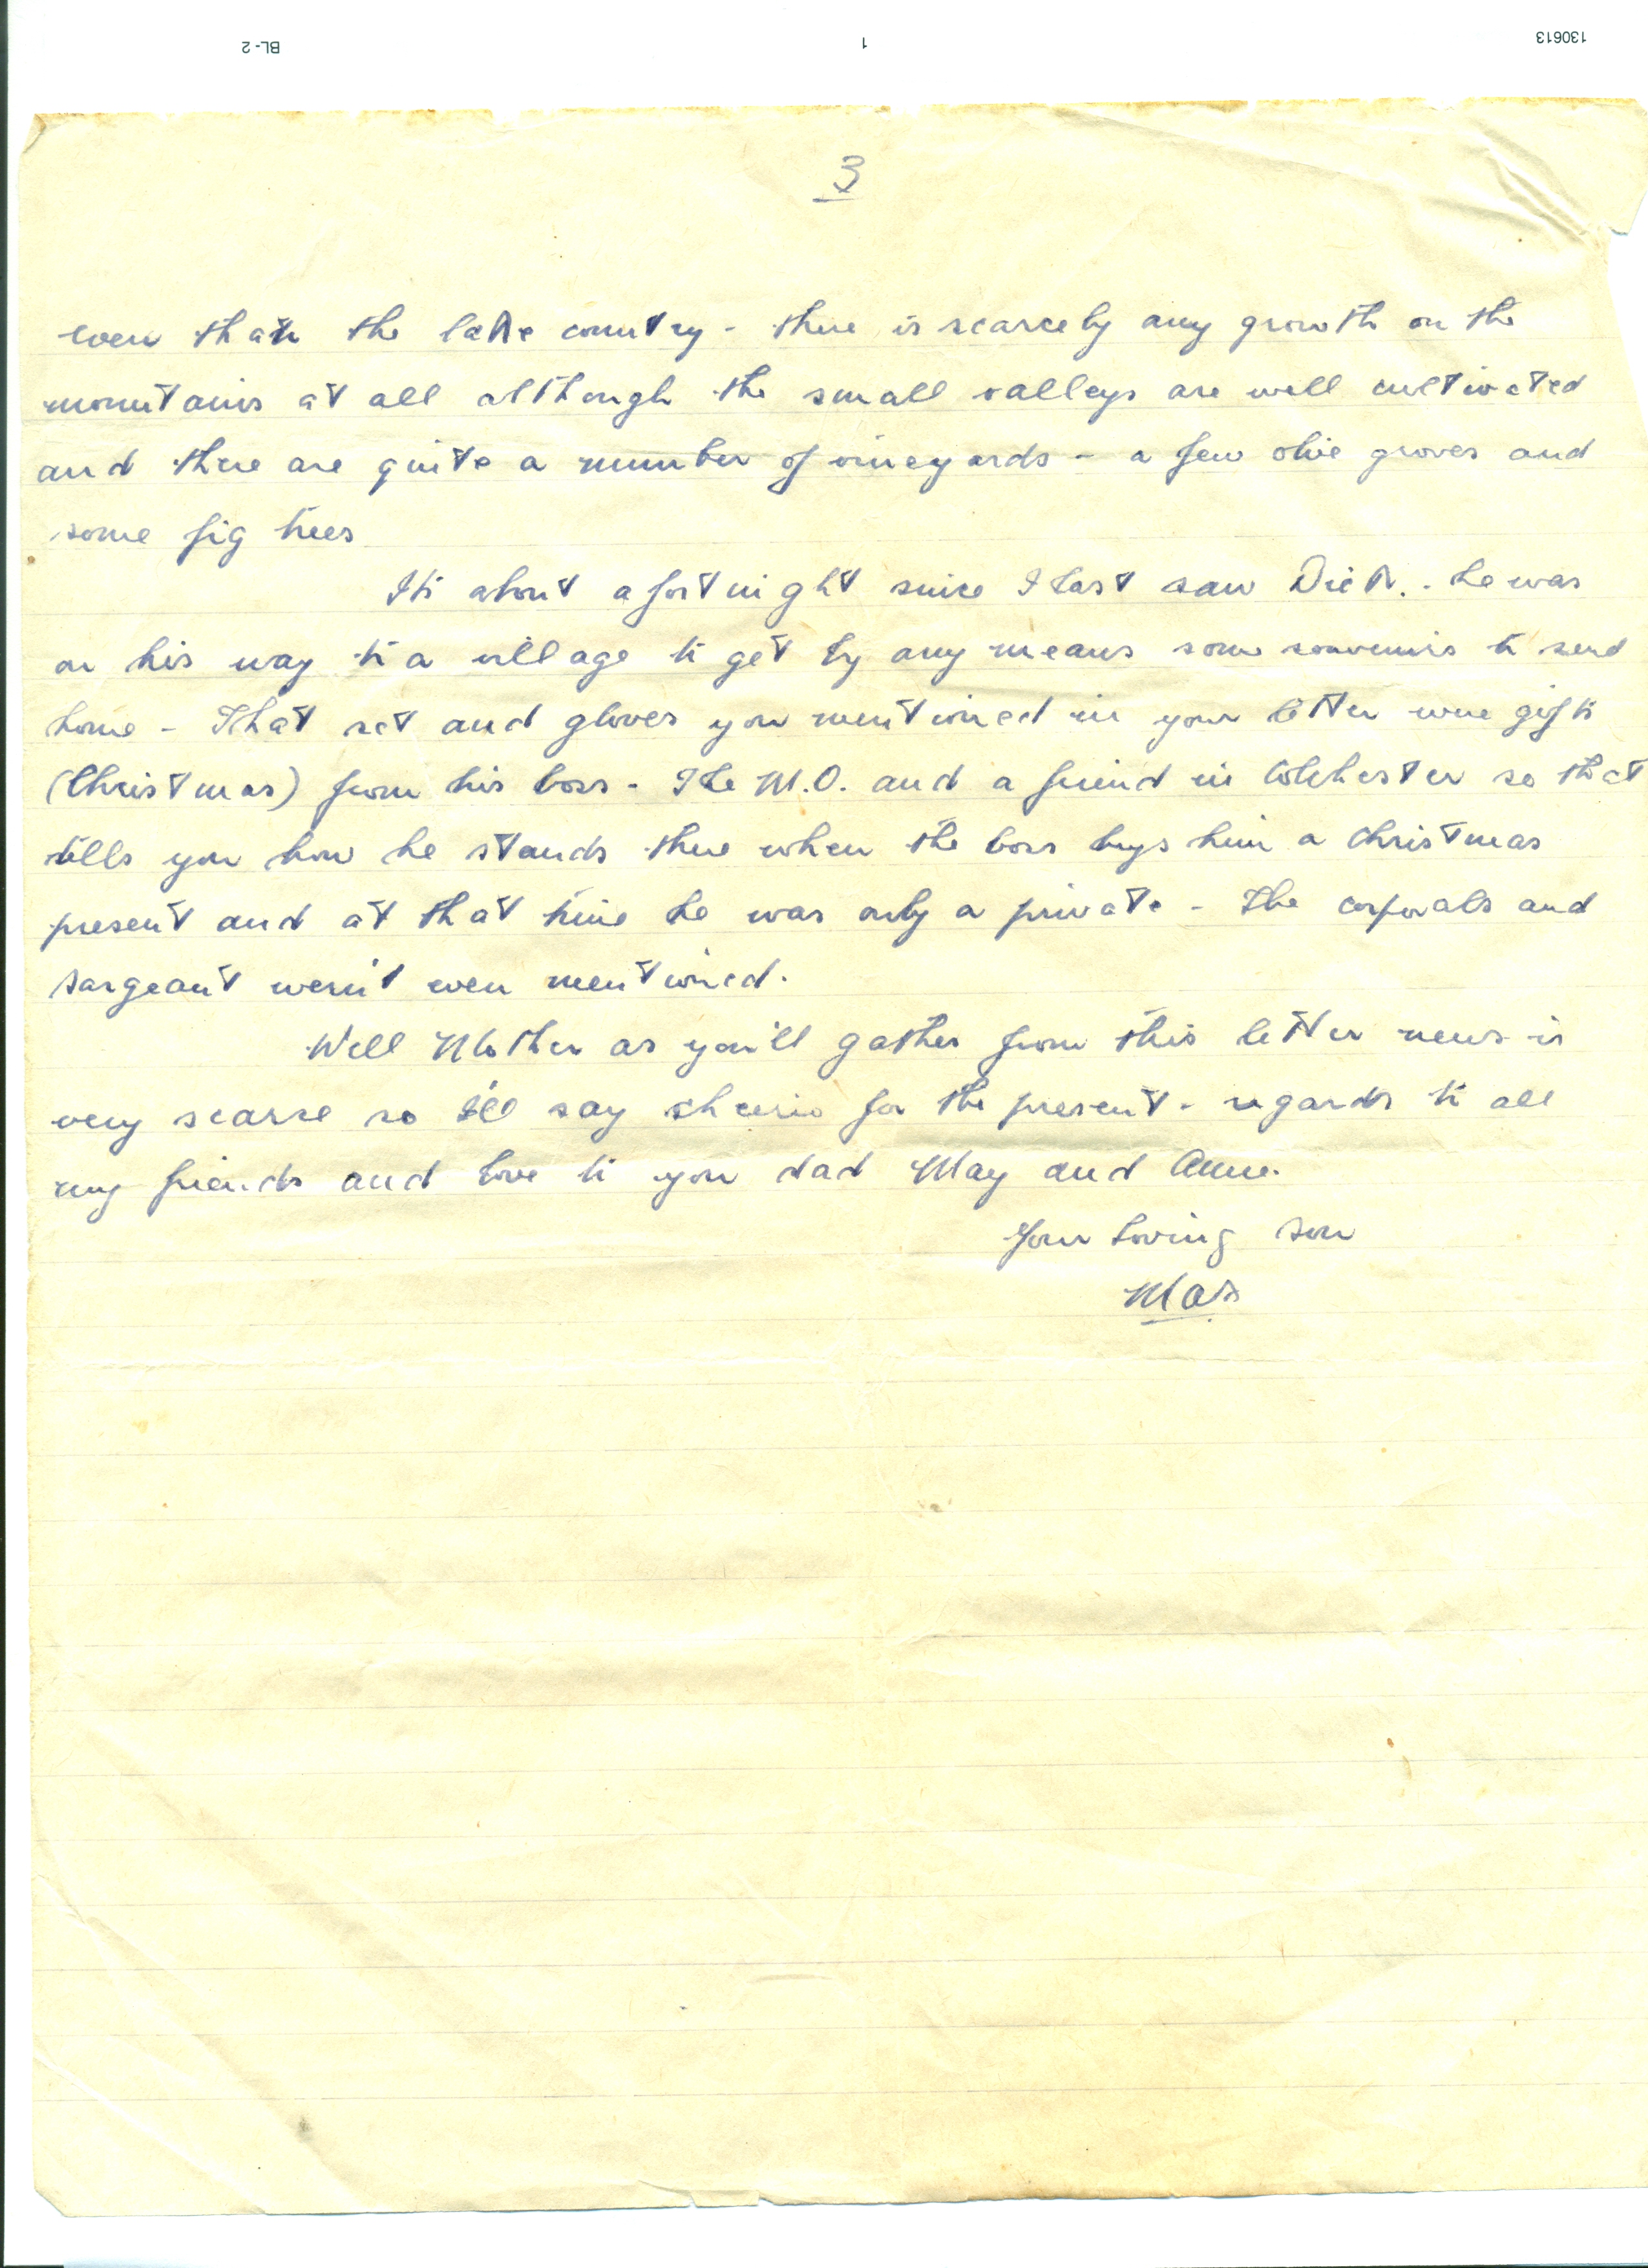 BL-2 1 130613
3
even than the lake country - there is scarcely any growth on the
mountains at all although the small valleys are well cultivated
and there are quite a number of vineyards - a few olive groves and
some fig trees
Its about a fortnight since I last saw Dick. - he was
on his way to a village to get by any means some souvenirs to send
home - That set and gloves you mentioned in your letter were gifts
(Christmas) from his boss - The M.O. and a friend in Colchester so that
tells you how he stands there when the boss buys him a Christmas
present and at that time he was only a private - The corporals and
sargeant weren't even mentioned.
Well Mother as you'll gather from this letter news is
very scarse so I'll say cheerio for the present - regards to all
my friends and love to you dad May and Anne.
Your loving son
Max